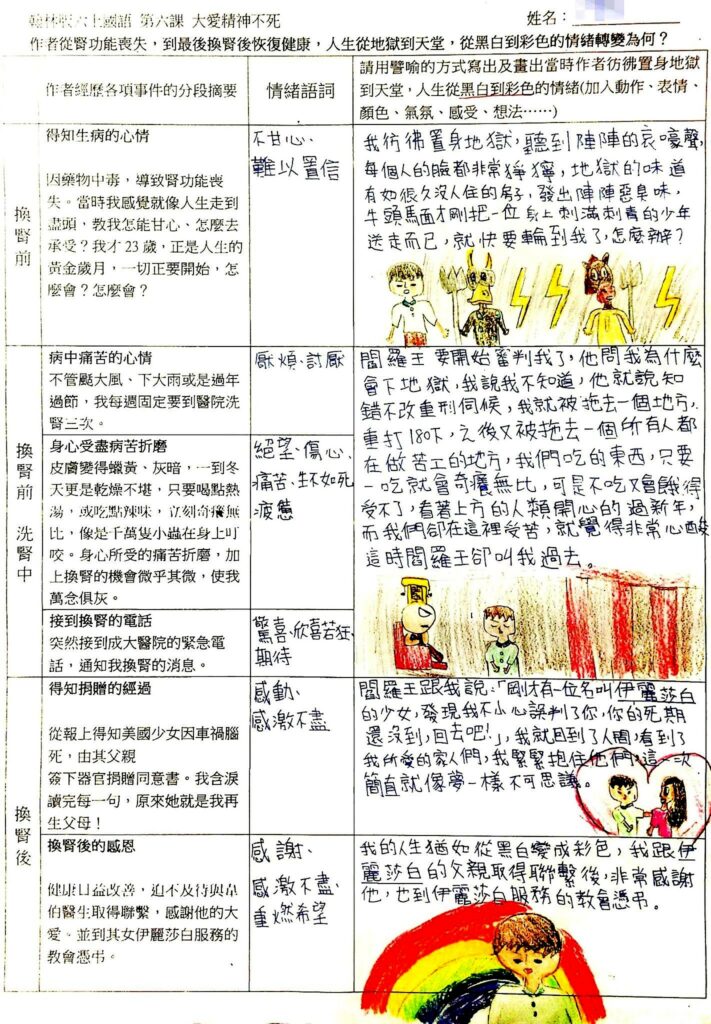 翰林版六上國語 第六課 大愛精神不死
姓名：
作者從腎功能喪失，到最後換腎後恢復健康，人生從地獄到天堂，從黑白到彩色的情緒轉變為何？
作者經歷各項事件的分段摘要
情緒語詞
請用譬喻的方式寫出及畫出當時作者彷彿置身地獄
到天堂，人生從黑白到彩色的情緒(加入動作、表情、
顏色、氣氛、感受、想法……)
換腎前
得知生病的心情
因藥物中毒，導致腎功能喪
失。當時我感覺就像人生走到
盡頭，教我怎能甘心、怎麼去
承受？我才 23 歲，正是人生的
黃金歲月，一切正要開始，怎
麼會？怎麼會？
不甘心、
難以置信
我彷彿置身地獄，聽到陣陣的哀嚎聲，
每個人的臉都非常猙獰，地獄的味道
有如很久沒人住的房子，發出陣陣惡臭味，
牛頭馬面才剛把一位身上刺滿刺青的少年
送走而已，就快要輪到我了，怎麼辦？
換腎前 洗腎中
病中痛苦的心情
不管颳大風、下大雨或是過年
過節，我每週固定要到醫院洗
腎三次。
厭煩、討厭
身心受盡病苦折磨
皮膚變得蠟黃、灰暗，一到冬
天更是乾燥不堪，只要喝點熱
湯，或吃點辣味，立刻奇癢無
比，像是千萬隻小蟲在身上叮
咬。身心所受的痛苦折磨，加
上換腎的機會微乎其微，使我
萬念俱灰。
絕望、傷心、
痛苦、生不如死
疲憊
接到換腎的電話
突然接到成大醫院的緊急電
話，通知我換腎的消息。
驚喜、欣喜若狂、
期待
閻羅王要開始審判我了，他問我為什麼
會下地獄，我說我不知道，他就說知
錯不改重刑伺候，我就被拖去一個地方，
重打180下，之後又被拖去一個所有人都
在做苦工的地方，我們吃的東西，只要
一吃就會奇癢無比，可是不吃又會餓得
受不了，看著上方的人類開心的過新年，
而我們卻在這裡受苦，就覺得非常心酸
這時閻羅王卻叫我過去。
閻
換腎後
得知捐贈的經過
從報上得知美國少女因車禍腦
死，由其父親
簽下器官捐贈同意書。我含淚
讀完每一句，原來她就是我再
生父母！
感動、
感激不盡
閻羅王跟我說：「剛才有一位名叫伊麗莎白
的少女，發現我不小心誤判了你，你的死期
還沒到，回去吧！」，我就回到了人間，看到了
我所愛的家人們，我緊緊抱住他們，這一次
簡直就像夢一樣不可思議。
換腎後的感恩
健康日益改善，迫不及待與韋
伯醫生取得聯繫，感謝他的大
愛。並到其女伊麗莎白服務的
教會憑弔。
感謝、
感激不盡、
重燃希望
我的人生猶如從黑白變成彩色，我跟伊
麗莎白的父親取得聯繫後，非常感謝
他，也到伊麗莎白服務的教會憑弔。